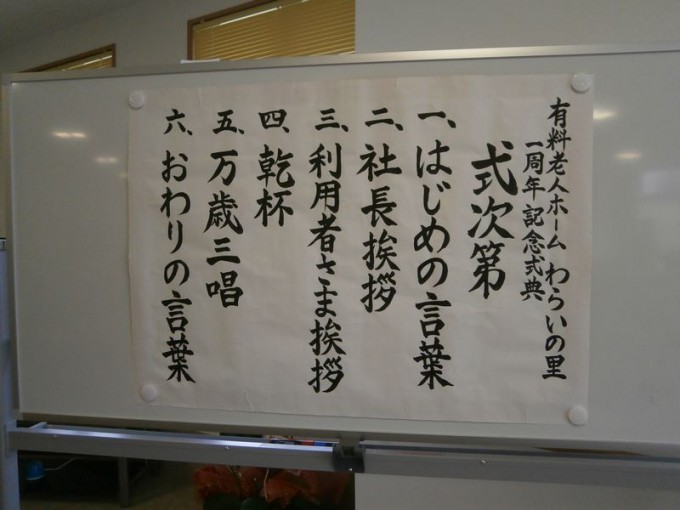 有料老人ホーム わらいの里
一周年記念式典
式次第
一、はじめの言葉
二、社長挨拶
三、利用者さま挨拶
四、乾杯
五、万歳三唱
六、おわりの言葉